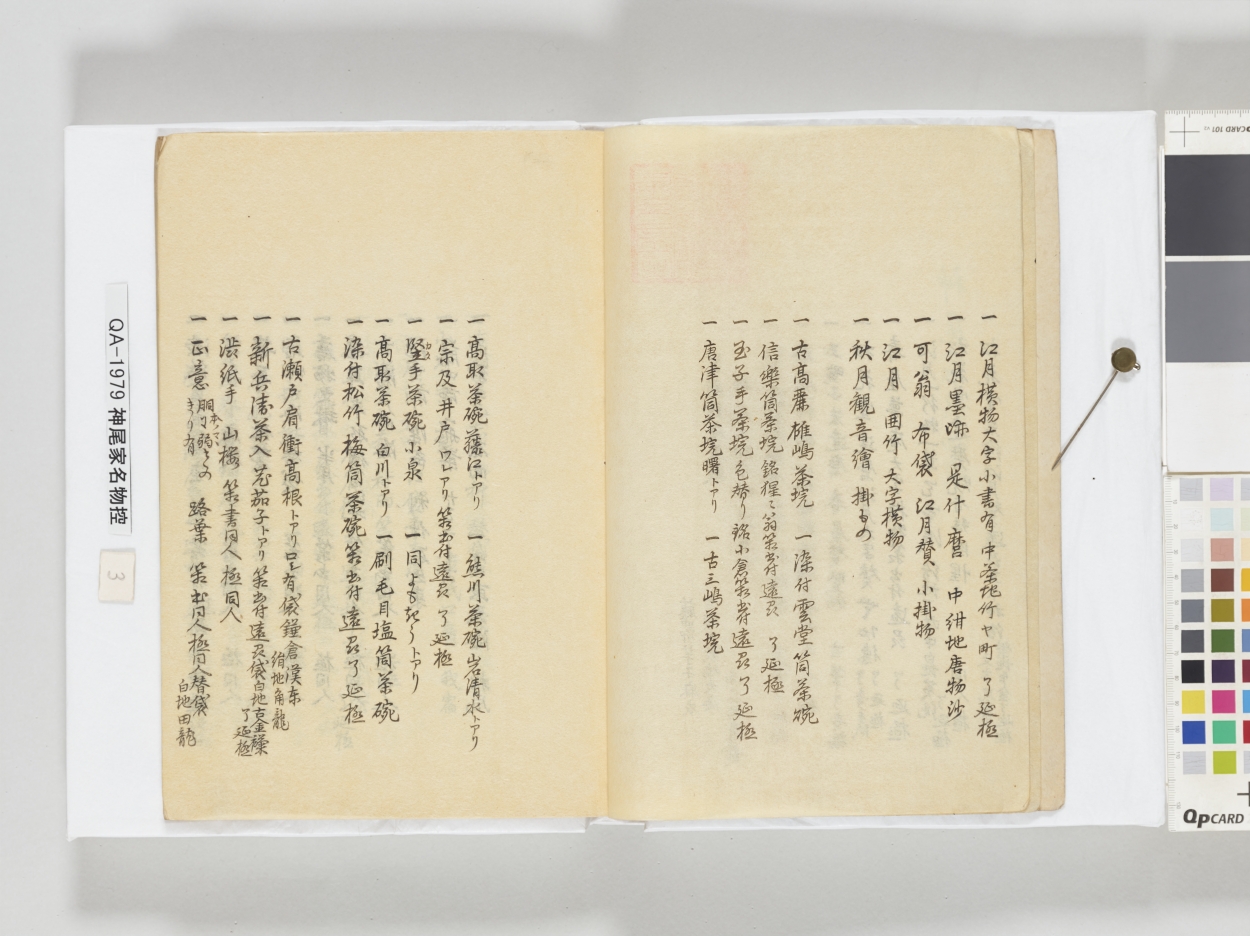 一 江月横物大字小書有 中茶地竹ヤ町 了延極
一 江月墨跡 是什麿 中紺地唐物沙
一 可翁 布袋 江月賛 小掛物
一 江月 囲竹 大字横物
一 秋月観音繪 掛もの
一 古高麗雄嶋茶垸 一 染付雲堂筒茶碗
一 信樂筒茶垸 銘猩〻翁箱書付遠州 了延極
一 玉子手茶垸 色替り銘小倉箱書付遠州 了延極
一 唐津筒茶垸曙トアリ 一 古三嶋茶垸
一 高取茶碗藤江トアリ 一 熊川茶碗岩清水トアリ
一 宗及井戸ワレアリ箱書付遠州 了延極
一 堅手茶碗 小泉 一 同 トアリ
一 高取茶碗 白川トアリ 一 刷毛目塩筒茶碗
一 染付松竹梅筒茶碗箱書付遠州 了延極
一 古瀬戸肩衝高根トアリ口ニ有 袋鐘倉漢东
紺地角龍
一 新兵衛茶入 茄子トアリ 箱書付遠州袋白地古金襴
了延極
一 渋紙手 山櫻 箱書同人 極同人
一 正意 路葉 箱書同人極同人替袋
白地田龍
QA-1979 神尾家名物控
3
QPCARD 101
QPCARD